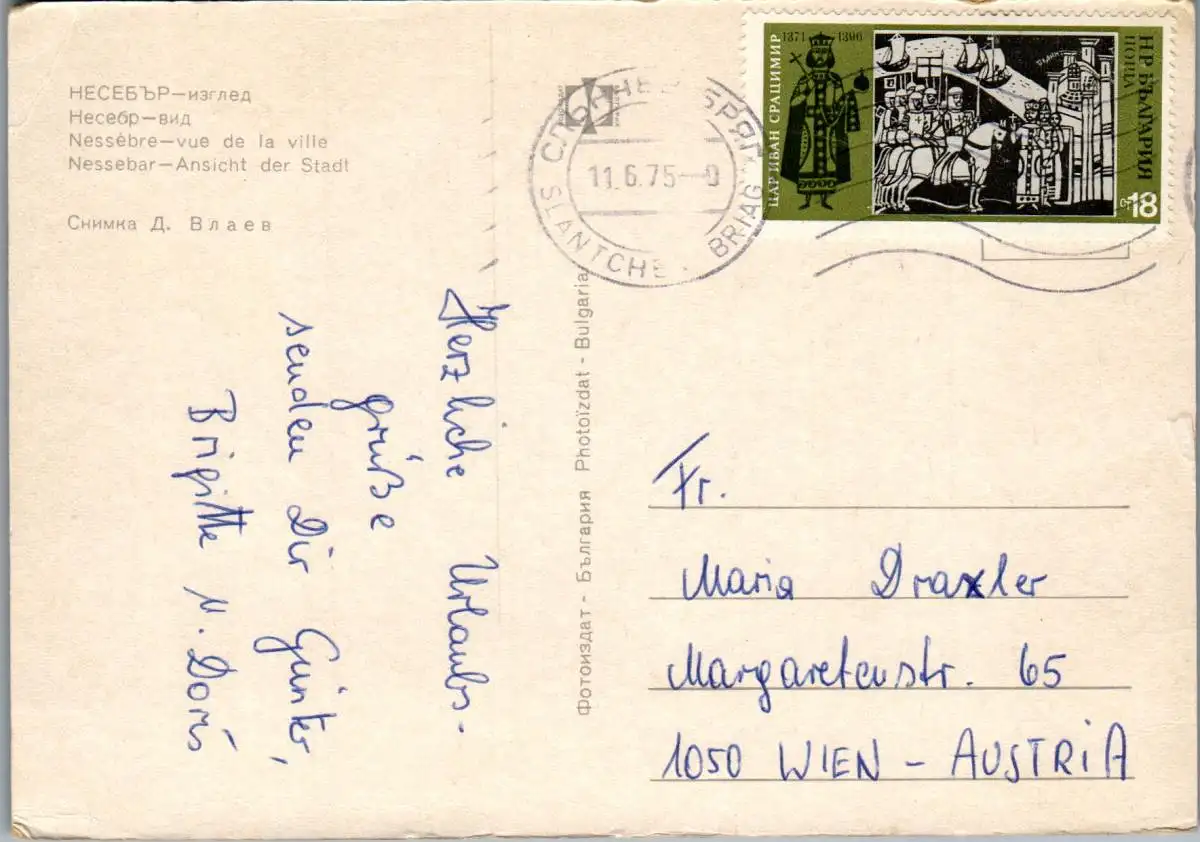 НЕСЕБЪР—изглед
Несебр—вид
Nessèbre—vue de la ville
Nessebar—Ansicht der Stadt
Снимка Д. Влаев
СЛЪНЧЕВ БРЯГ
11.6.75
SLANTCHE BRIAG
ЦАР ИВАН СРАЦИМИР
1371 1396
НР БЪЛГАРИЯ
ПОЩА
СТ 18
Herzliche Urlaubs-
grüße
senden Dir Günter,
Brigitte u. Doris
Фотоиздат - България Photoïzdat - Bulgaria
Fr.
Maria Draxler
Margaretenstr. 65
1050 WIEN - AUSTRIA